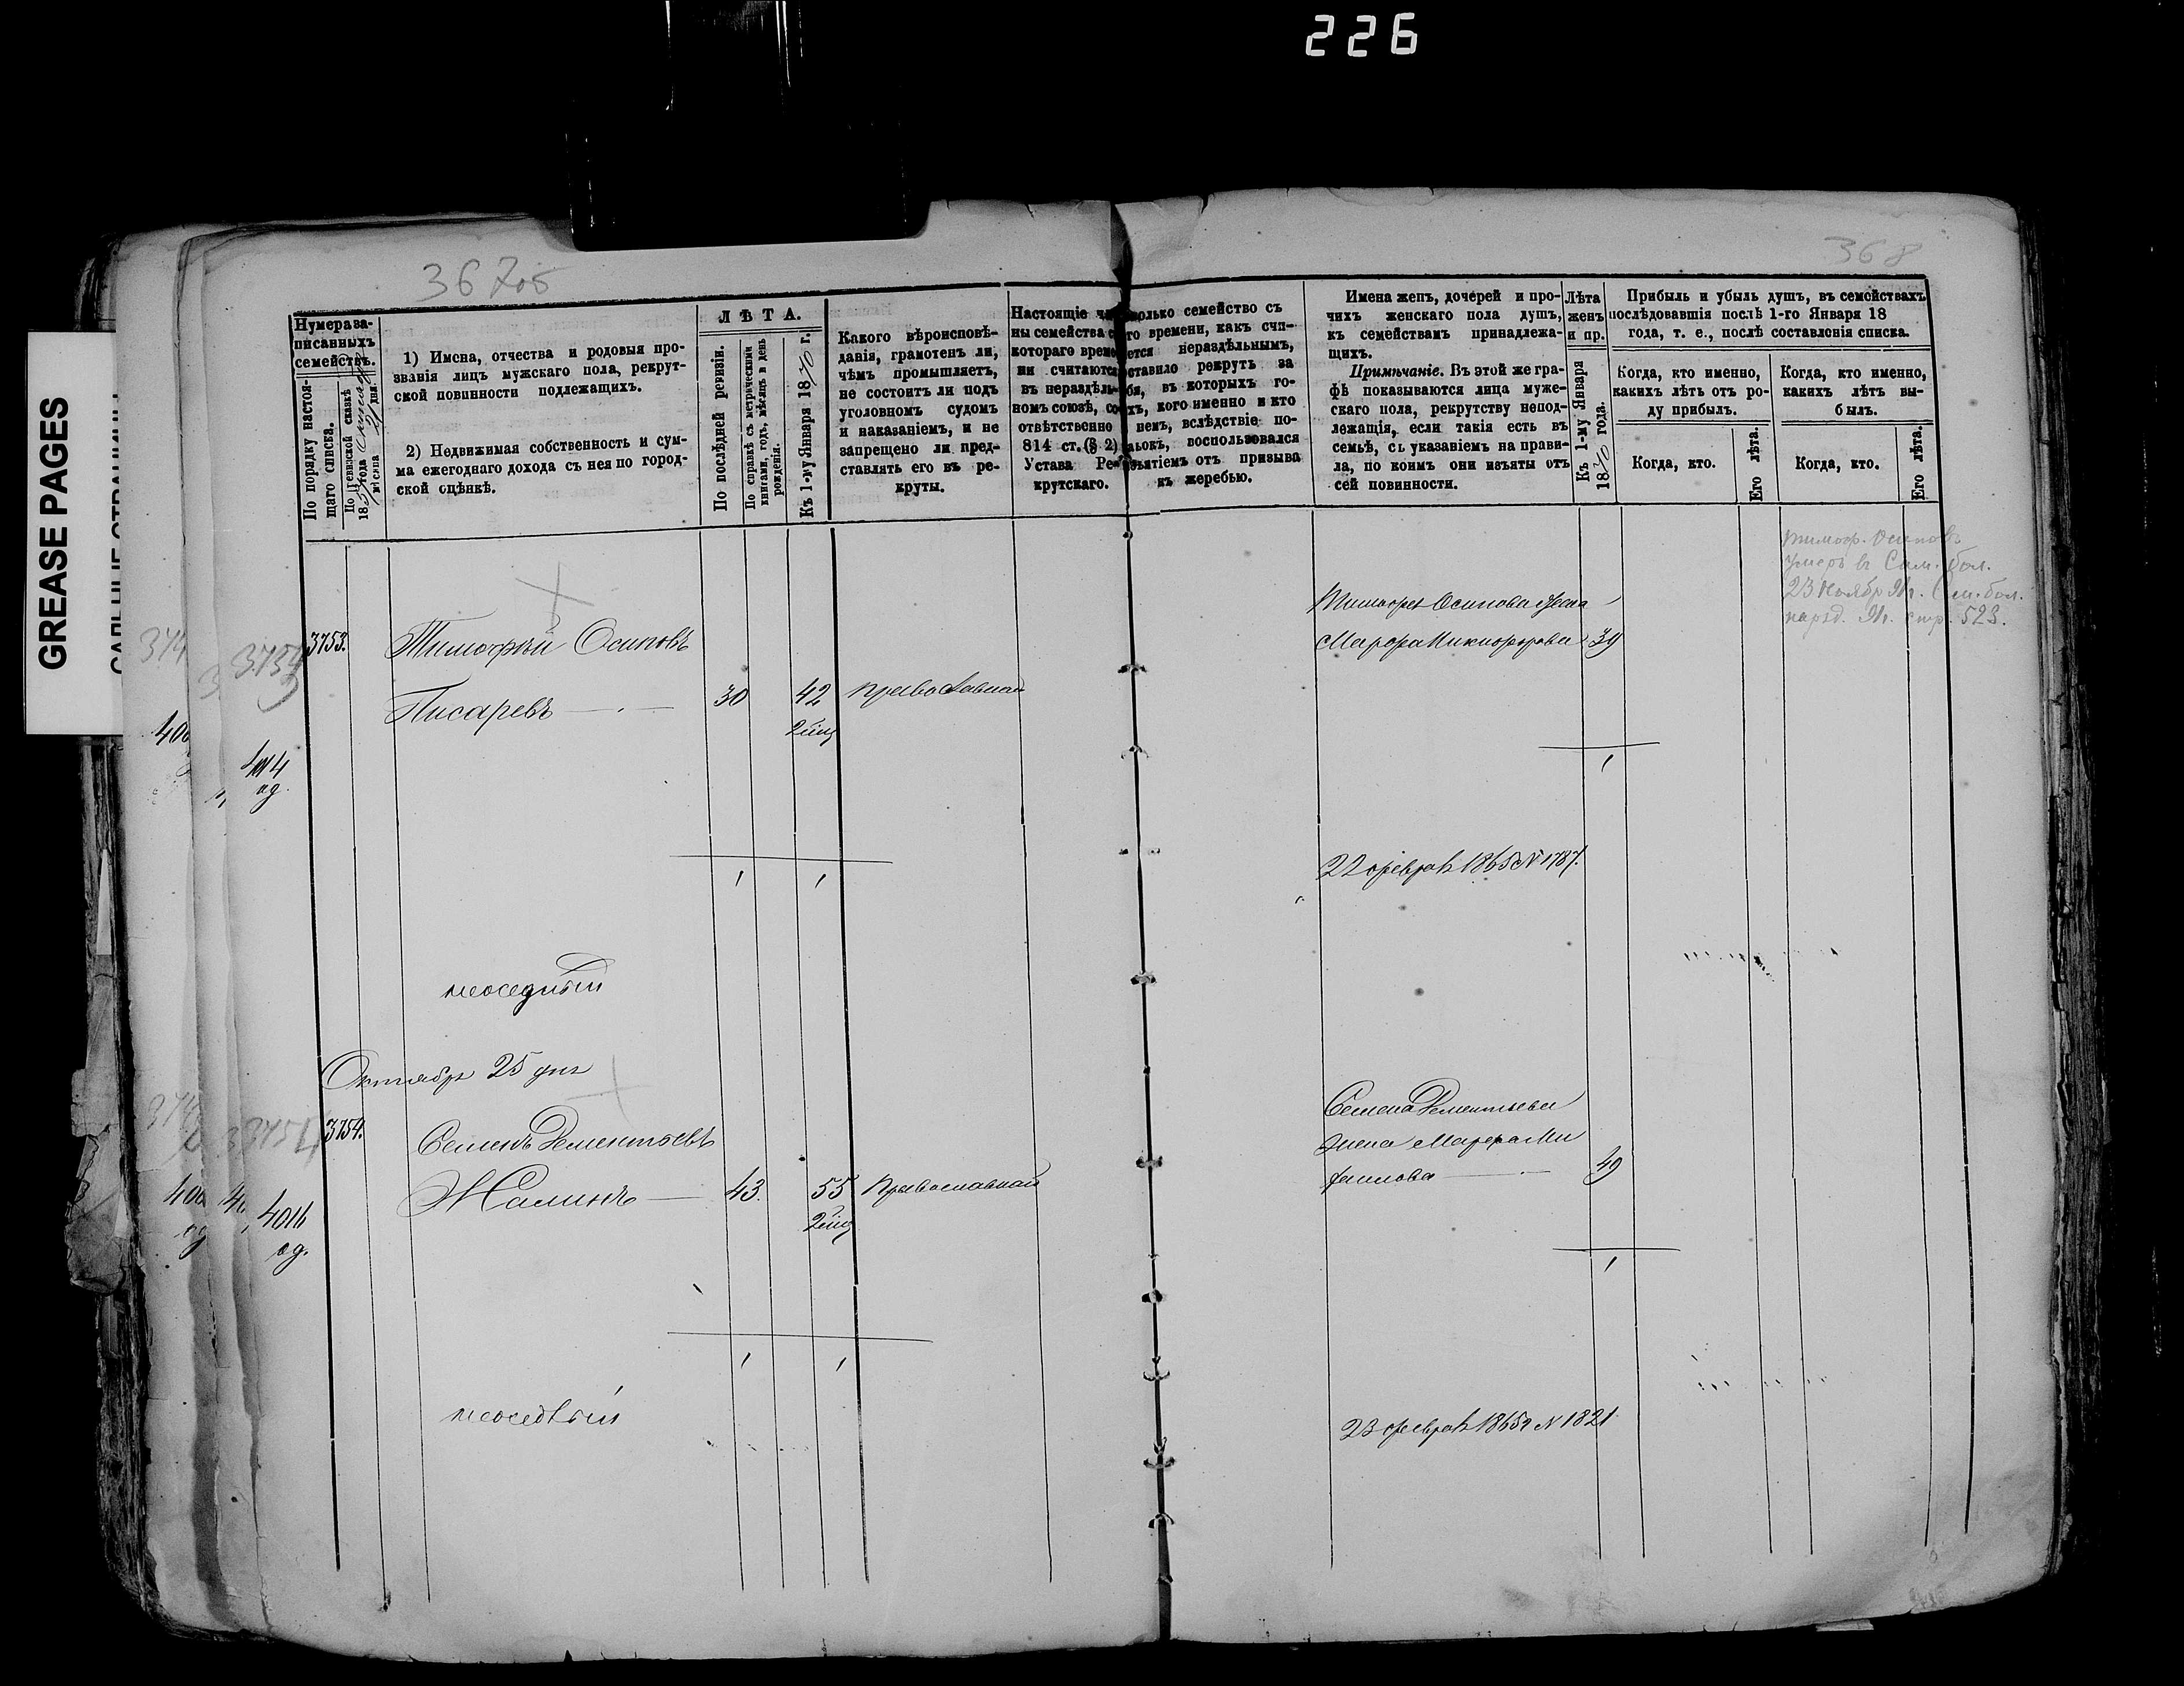 226
GREASE PAGES
367об
368
Нумера за-
писанныхъ
семействъ.
По порядку настоя-
щаго списка.
По ревизской сказкѣ
18 года
мѣсяца дня
1) Имена, отчества и родовыя про-
званія лицъ мужскаго пола, рекрут-
ской повинности подлежащихъ.
2) Недвижимая собственность и сум-
ма ежегоднаго дохода съ нея по город-
ской оцѣнкѣ.
ЛѢТА.
По послѣдней ревизіи.
По справкѣ съ метрическими
книгами, годъ, мѣсяцъ и день
рожденія.
Къ 1-му Января 1870 г.
Какого вѣроисповѣ-
данія, грамотенъ ли,
чѣмъ промышляетъ,
не состоитъ ли подъ
уголовномъ судомъ
и наказаніемъ, и не
запрещено ли пред-
ставлять его въ ре-
круты.
Настоящіе
ны семейства
котораго
ни считаются
въ нераздѣль-
номъ союзѣ,
отвѣтственно
814 ст. (§ 2)
Устава Ре-
крутскаго.
семейство съ
времени, какъ счи-
нераздѣльнымъ,
рекрутъ за
въ которыхъ го-
кого именно и кто
немъ, вслѣдствіе по-
воспользовался
отъ призыва
къ жеребью.
Имена женъ, дочерей и про-
чихъ женскаго пола душъ,
къ семействамъ принадлежа-
щихъ.
Примѣчаніе. Въ этой же гра-
фѣ показываются лица муже-
скаго пола, рекрутству непод-
лежащія, если такія есть въ
семьѣ, съ указаніемъ на прави-
ла, по коимъ они изъяты отъ
сей повинности.
Лѣта
женъ
и пр.
Къ 1-му Января
1870 года.
Прибыль и убыль душъ, въ семействахъ
послѣдовавшія послѣ 1-го Января 18
года, т. е., послѣ составленія списка.
Когда, кто именно,
какихъ лѣтъ отъ ро-
ду прибылъ.
Когда, кто.
Его лѣта.
Когда, кто именно,
какихъ лѣтъ вы-
былъ.
Когда, кто.
Его лѣта.
3753.
Тимофѣй Осиповъ
Писаревъ
30
42
православной
Тимофея Осипова жена
Марфа Никифорова 39
1
Тимоф. Осиповъ
умеръ въ Сам. бол.
23 Ноябр 91г.
стр. 523.
1 1
22 февраля 1865 № 1787.
неоседлый
Октября 25 дня
3754.
Семенъ Дементьевъ
Жалинъ
43.
55
Православной
Семена Дементьева
жена Марфа Ми
хаилова
49
1
1 1
неоседлый
23 февраля 1865г № 1821
3753
4014
ад.
3754
4016
ад.